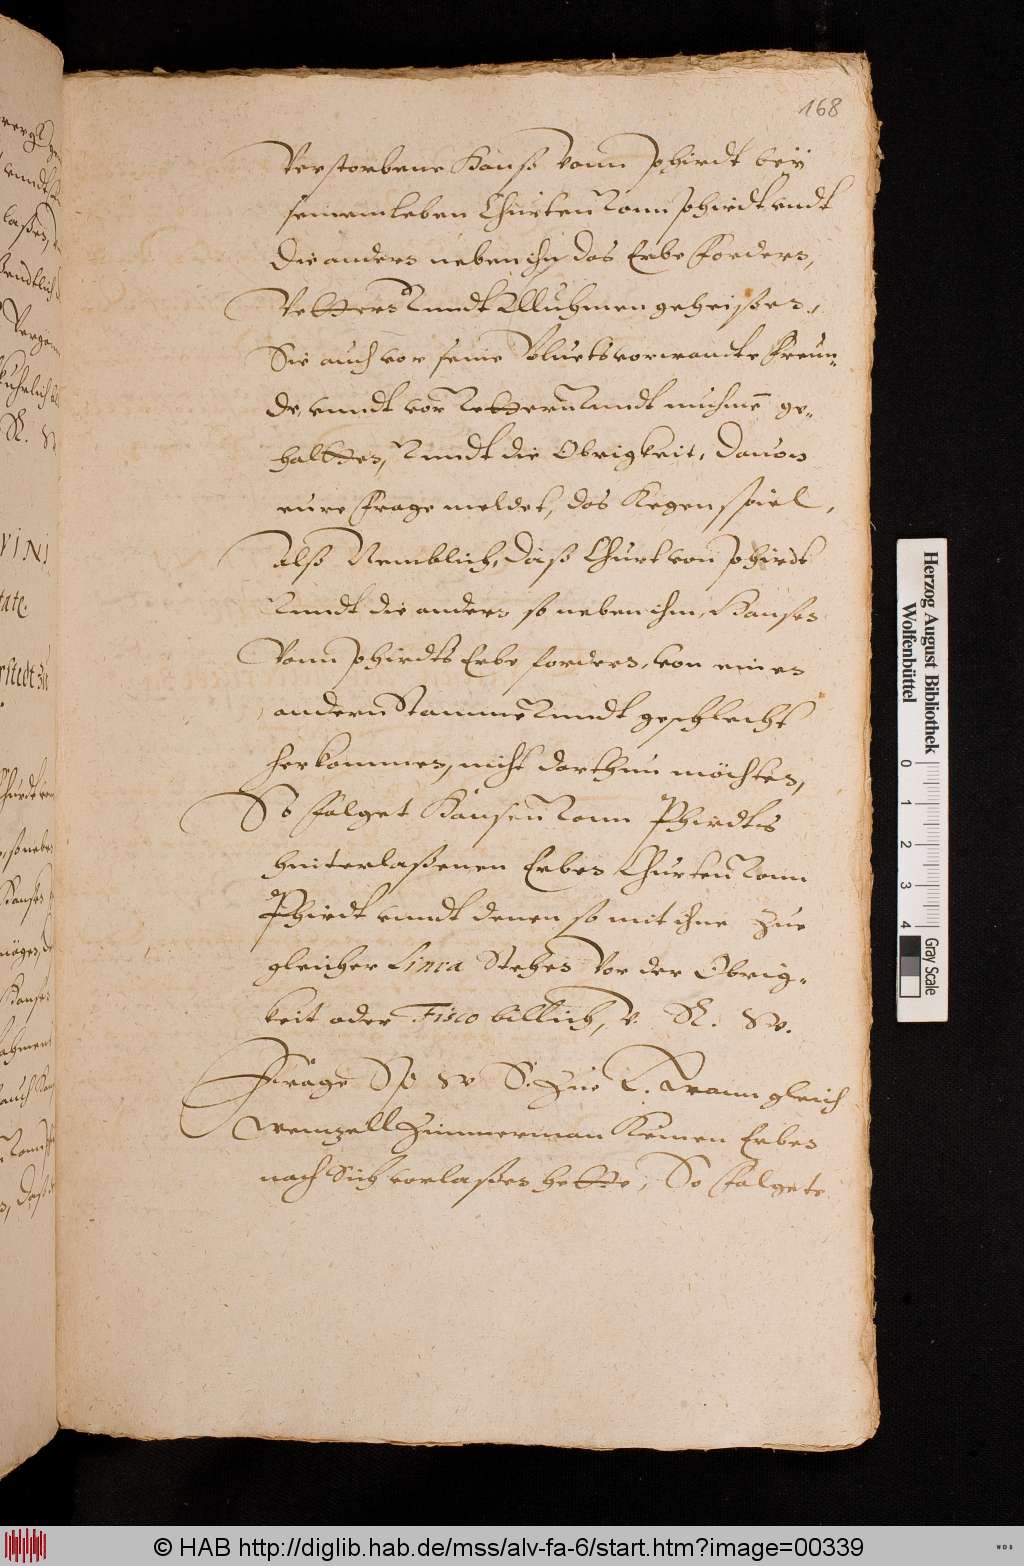 168
Verstorbene Hanß vonn Phirdt bey
seinem leben Churten vonn Phirdt undt
die andern neben ihn das Erbe fordern,
Vettern undt Muhmen geheißen,
Sie auch vor seine Bluetsvorwandte Freun-
de, unndt vor Vettern undt muhmē ge-
haltten, unndt die Obrigkeit, dauon
eure frage meldet, das Kegenspiel,
alß Nemblich, daß Churt von Phirdt
unndt die andern so neben ihm, Hansen
vonn Phirdts Erbe fordern, von einem
andern Stamme unndt geschlecht
herkommen, nicht darthun möchten,
So folget Hansen vonn Phirdts
hinterlaßenen Erben Churten vonn
Phirdt unndt denen so mit ihme zue
gleicher Linea Stehen vor der Obrig-
keit oder Fisco billich, v. R. w.
Frage Wann gleich
wenzell Zimmerman Keinen Erben
nach sich vorlaßen hette, So folgete
Herzog August Bibliothek
Wolfenbüttel
0 1 2 3 4
Gray Scale
© HAB http://diglib.hab.de/mss/alv-fa-6/start.htm?image=00339